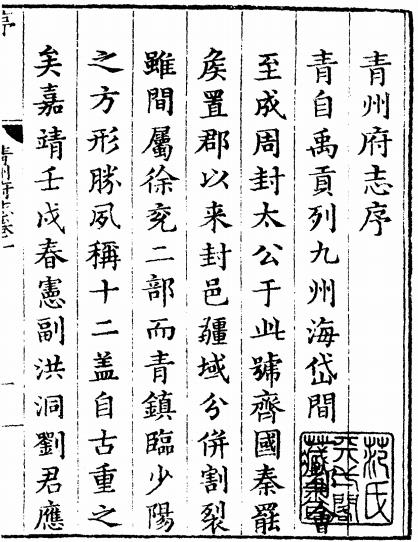 青州府志序
青自禹貢列九州海岱間
至成周封太公于此號齊國秦罷
矦置郡以来封邑疆域分併割裂
雖間屬徐兖二部而青鎮臨少陽
之方形勝夙稱十二盖自古重之
矣嘉靖壬戌春憲副洪洞劉君應
序
青州府志卷一
范氏
天一閣
藏書